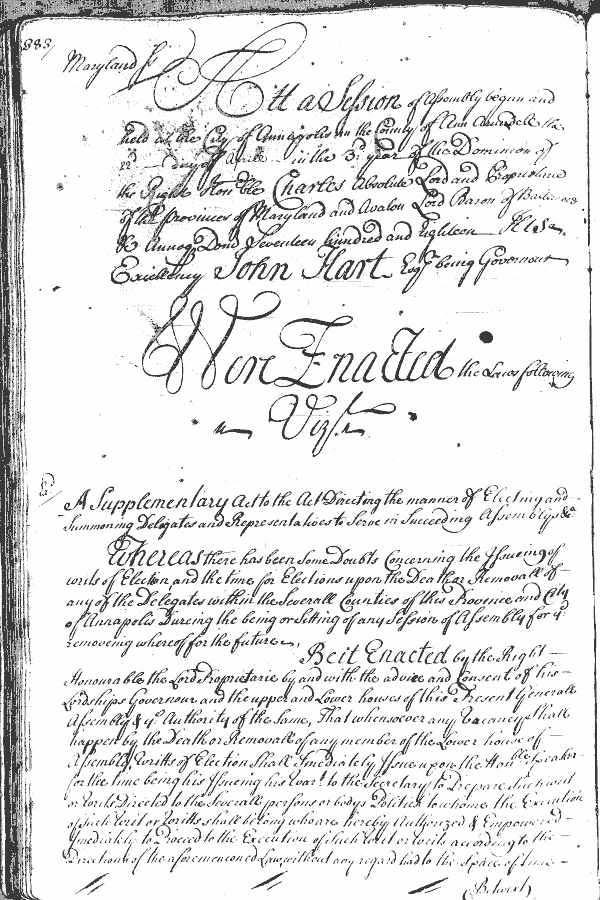 383
Maryland ss
At a Session of Assembly begun and
held at the City of Annapolis in the County of Ann Arundell the
22d day of Aprile in the 3d year of the Dominion of
the Right Honble Charles Absolute Lord and Proprietarie
of the Provinces of Maryland and Avalon Lord Baron of Baltemore
&c Annoq Dom Seventeen hundred and Eighteen His
Excellency John Hart Esqr being Governour
Were Enacted the Laws following
Vizt
A Supplementary Act to the Act Directing the manner of Electing and
Summoning Delegates and Representatives to Serve in Succeeding Assemblys &c
Whereas there has been Some Doubts Concerning the Issueing of
writs of Election and the time for Elections upon the Death or Removall of
any of the Delegates within the Severall Counties of this Province and City
of Annapolis Dureing the being or Sitting of any Session of Assembly for ye
removeing whereof for the future
Be it Enacted by the Right
Honourable the Lord Proprietarie by and with the advice and Consent of his
Lordships Governour and the upper and Lower houses of this Present Generall
Assembly & ye Authority of the Same, That whensoever any Vacancy Shall
happen by the Death or Removall of any member of the Lower house of
Assembly Writts of Election Shall Imediately Issue upon the Honble Speaker
for the time being his Issueing his Warrt to the Secretary to Prepare Such writ
or Writs Directed to the Severall persons or bodys Politick to whome the Execution
of Such Writ or Writts shall belong who are hereby Authorized & Empowered
Imediately to Proceed to the Execution of Such Writ or Writs according to the
Directions of the aforemenconed Law without any regard had to the Space of time